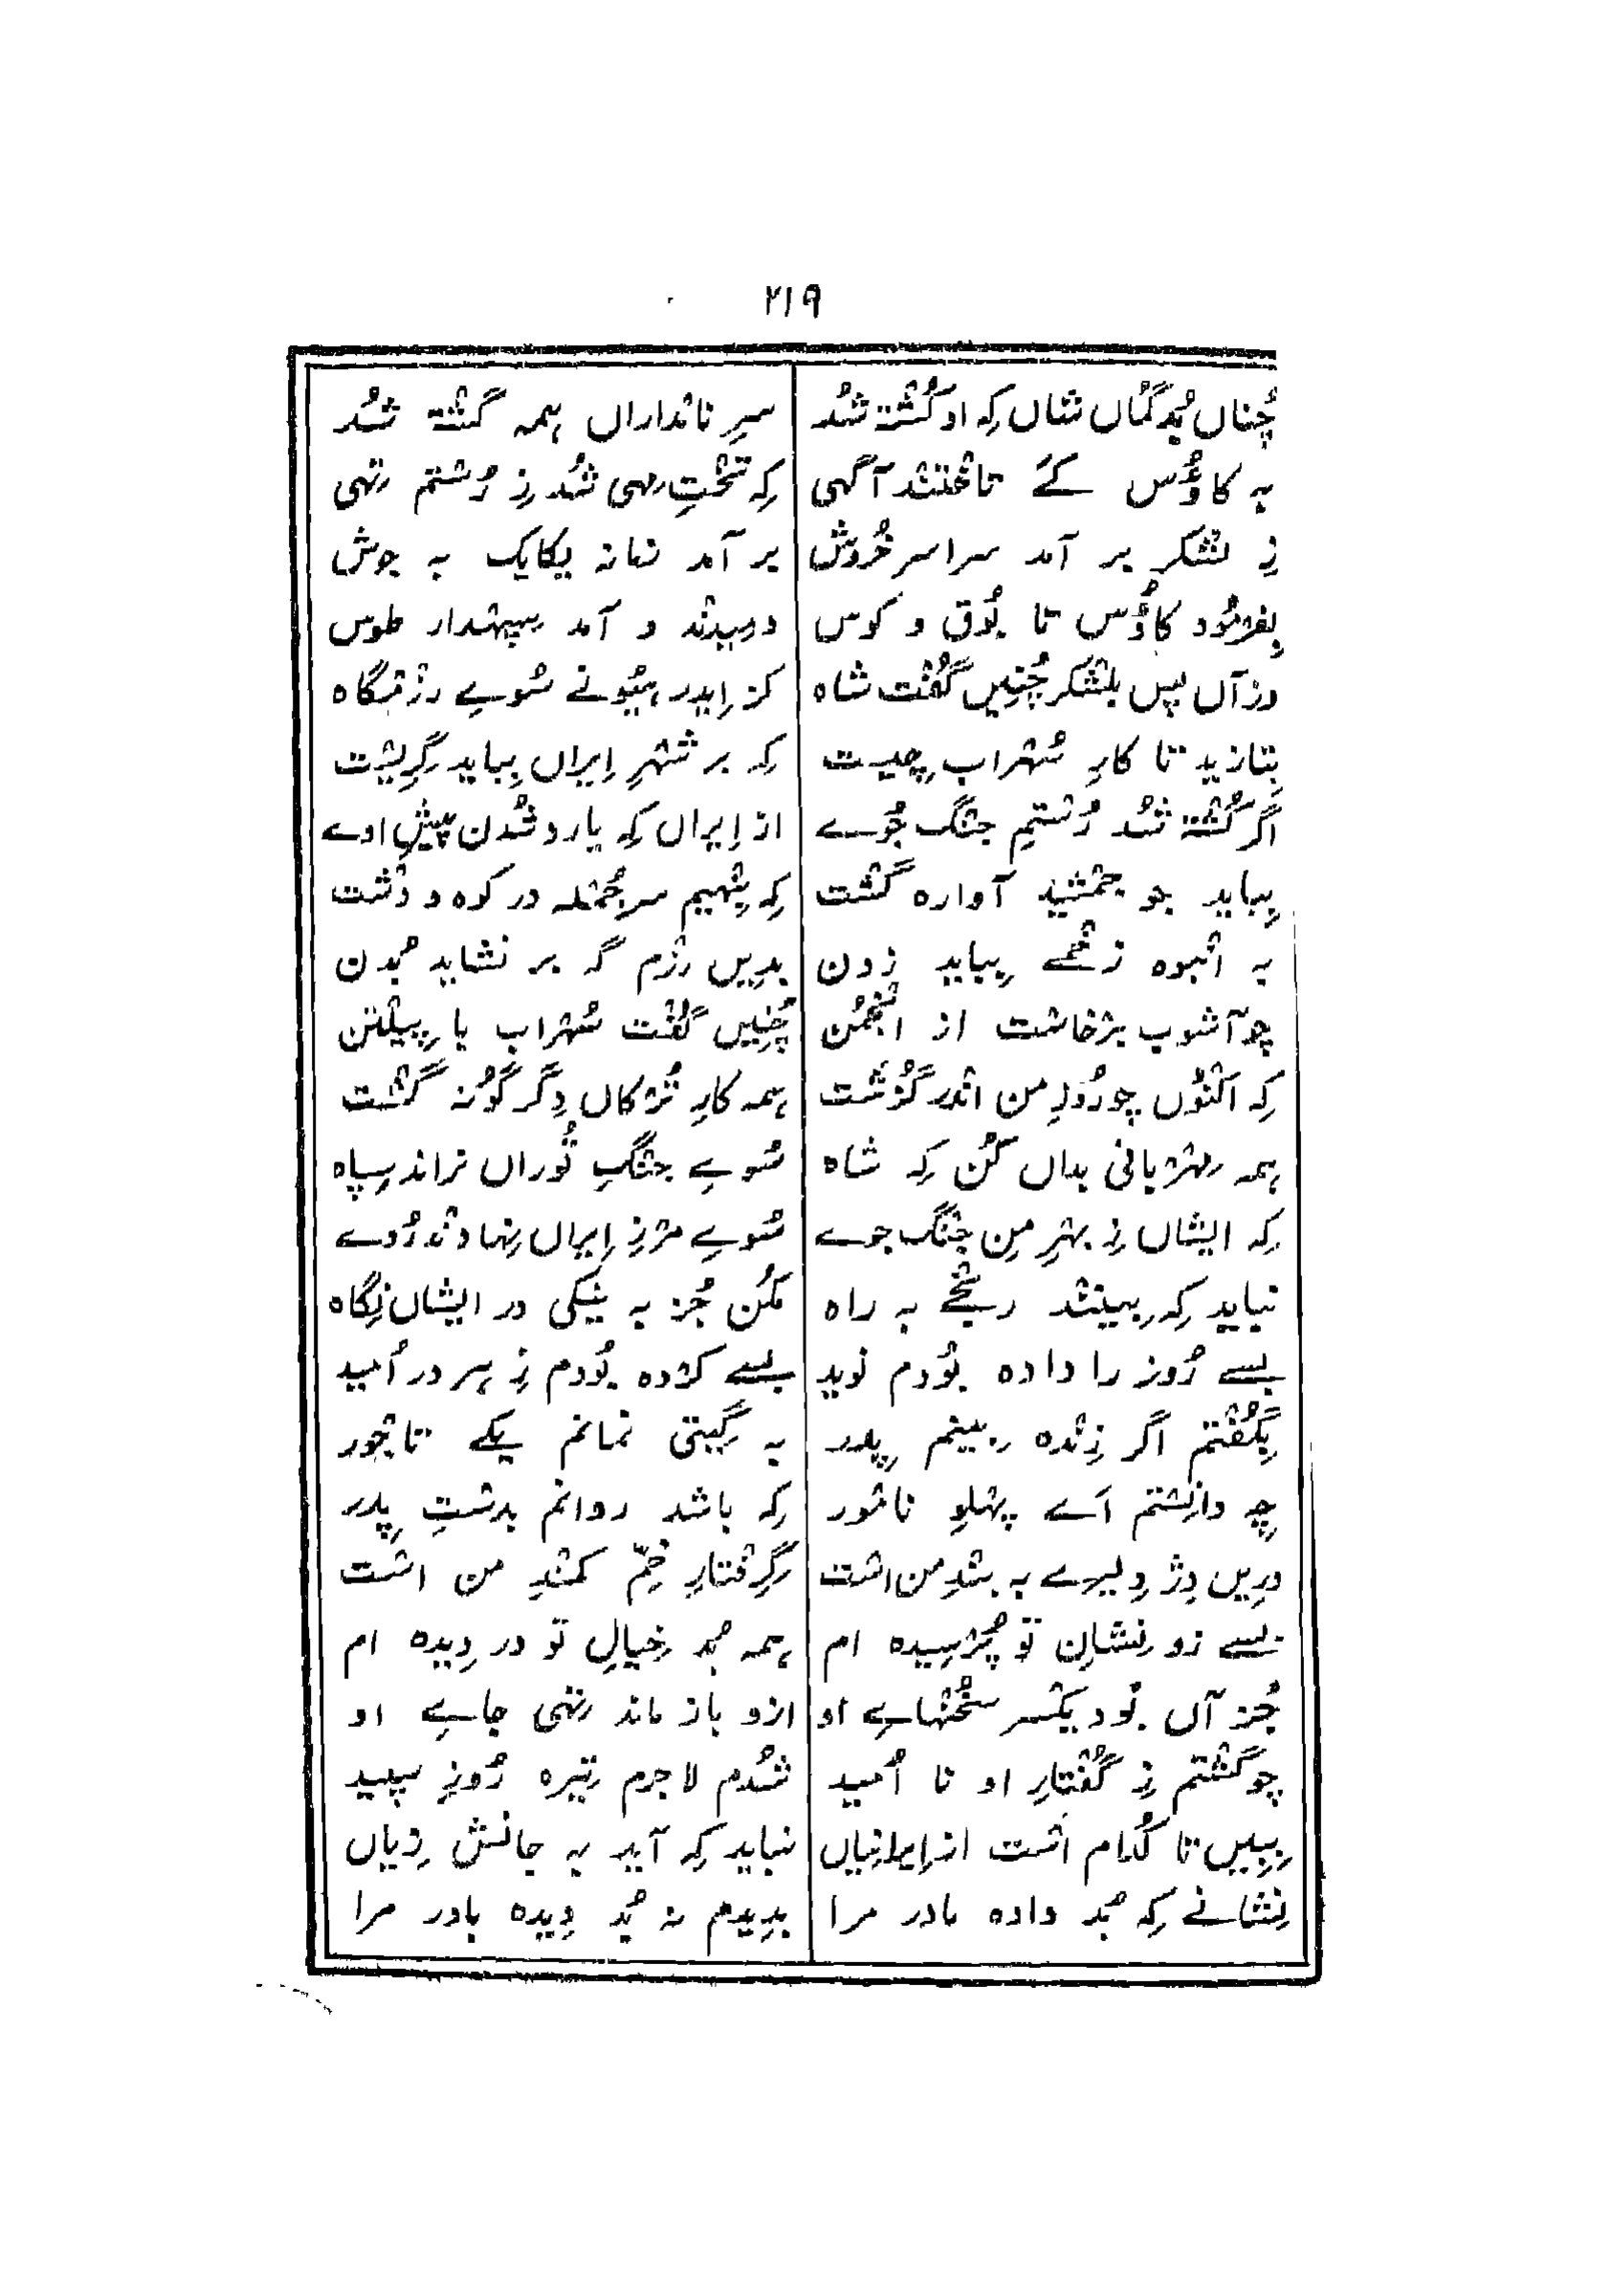 ۲۱۹
چُناں بُد گُماں شاں کِہ او کُشْتہ شُد سرِ نامْداراں ہمہ گشْتہ شُد
بہ کاؤُس کَے تاخْتنْد آگہی کِہ تخْتِ مِہی شُد زِ رُسْتم تِہی
زِ لشْکر بر آمد سراسر خُروش بر آمد زمانہ یکایک بہ جوش
بِفرْمُود کاؤُس تا بُوق و کوس دمِیدنْد و آمد سِپہْدار طوس
وزآں پس بلشْکر چُنِیں گُفْت شاہ کز اِیدر ہیُونے سُوے رزْمگاہ
بِتازید تا کارِ سُہْراب چِیست کِہ بر شہْرِ اِیراں بِباید گِرِیْست
اگر کُشْتہ شُد رُسْتمِ جنْگ جُوے از اِیراں کِہ یارد شُدن پیشِ اوے
بِباید چو جمْشید آوارہ گشْت کِہ نِہیم سر جُمْلہ در کوہ و دشْت
بہ انْبوہ زخْمے بِباید زدن بدِیں رزْم گہ بر نشاید بُدن
چو آشوب برْخاسْت از انْجُمن چُنِیں گُفْت سُہْراب با پِیلْتن
کِہ اکْنُوں چو رُوزِ من انْدر گُزشْت ہمہ کارِ تُرْکاں دِگر گُونہ گشْت
ہمہ مِہْرْبانی بداں کُن کِہ شاہ سُوے جنْگِ تُوراں نراند سِپاہ
کِہ ایشاں زِ بہْرِ مِن جنْگ جوے سُوے مرْزِ اِیراں نِہادنْد رُوے
نباید کِہ بِینْنْد رنْجے بہ راہ مکُن جُز بہ نیکی در ایشاں نِگاہ
بسے رُوز را دادہ بُودم نوید بسے کرْدہ بُودم زِ ہر در اُمید
بِگُفْتم اگر زِنْدہ بِینم پِدر بہ گِیتی نمانم یکے تاجْور
چِہ دانِسْتم اَے پہْلوِ نامْور کِہ باشد روانم بدسْتِ پِدر
درِیں دِژ دِلیرے بہ بنْدِ من اسْت گِرِفْتارِ خمِّ کمنْدِ من اسْت
بسے زو نِشانِ تو پُرْسِیدہ ام ہمہ بُد خِیالِ تو در دِیدہ ام
جُز آں بُود یکْسر سخُنْہاے او ازو باز ماند تِہی جاے او
چو گشْتم زِ گُفْتارِ او نا اُمید شُدم لاجرم تِیرہ رُوزِ سپید
بِبِیں تا کُدام اسْت از اِیرانِیاں نباید کِہ آید بہ جانش زِیاں
نِشانے کِہ بُد دادہ مادر مرا بدِیدم نہ بُد دِیدہ باور مرا